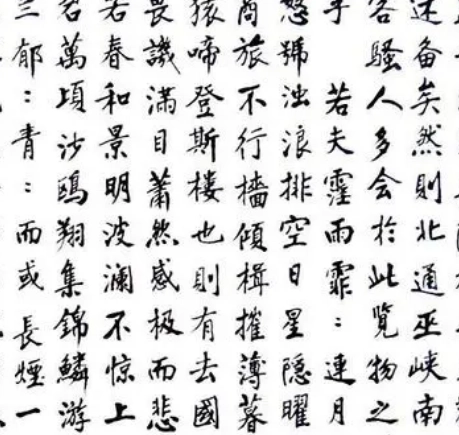 述备矣然則北通巫峡南
客騷人多会於此覧物之
乎 若夫霪雨霏：連月
怒號浊浪排空日星隱曜
商旅不行檣傾楫摧薄暮
猿啼登斯楼也則有去國
畏譏滿目蕭然感极而悲
若春和景明波澜不惊上
萬頃沙鷗翔集錦鱗游
兰郁：青：而或長煙一